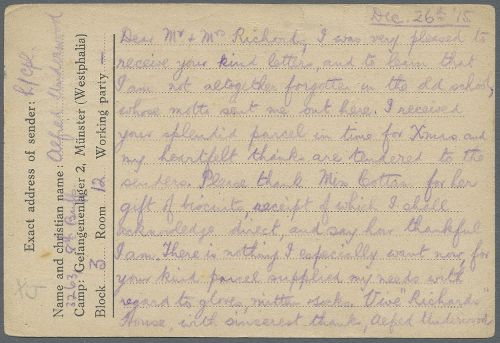 Dec. 26th '15
Dear Mr & Mrs Richond, I was very pleased to
receive your kind letters, and to learn that
I am not altogether forgotten in the old school,
whose motto sent me out here. I received
your splendid parcel in time for Xmas and
my heartfelt thanks are tendered to the
senders. Please thank Miss Cottan for her
gift of biscuits, receipt of which I shall
acknowledge direct, and say how thankful
I am. There is nothing I especially want now, for
your kind parcel supplied my needs with
regard to gloves, mittens socks. Vive "Richards"
House, with sincerest thanks, Alfred Underwood
Exact address of sender: L/Cpl.
Name and christian name: Alfred Underwood
Camp: Gefangenenlager 2, Münster (Westphalia)
Block 3 Room 12 Working party —